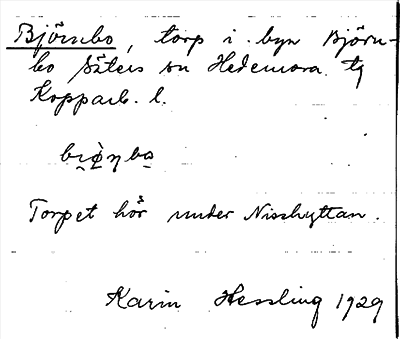 Björnbo, torp i byn Björn-
bo Säters sn Hedemora tg
Kopparb. l.
Torpet hör under Nisshyttan.
Karin Hessling 1929